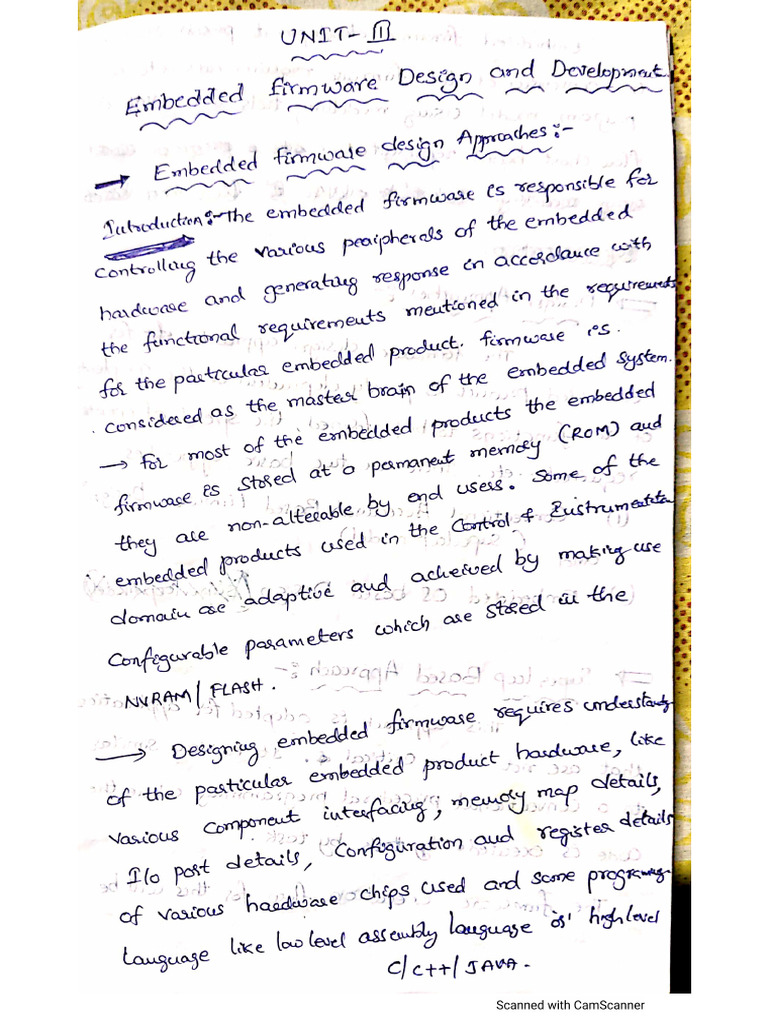 UNIT-III
Embedded firmware Design and Development
→ Embedded firmware design Approaches:-
Introduction:- The embedded firmware is responsible for
controlling the various peripherals of the embedded
hardware and generating response in accordance with
the functional requirements mentioned in the requirements
for the particular embedded product. firmware is.
considered as the master brain of the embedded system.
→ For most of the embedded products the embedded
firmware is stored at a permanent memory (ROM) and
they are non-alterable by end users. Some of the
embedded products used in the Control & Instrumentation
domain are adaptive and acheived by making use
Configurable parameters which are stored in the
NVRAM/FLASH.
→ Designing embedded firmware requires understandg
of the particular embedded product hardware, like
various component interfacing, memory map details,
I/o port details, Configuration and register details
of various hardware chips used and some programing
language like low level assembly language or high level
C/C++/JAVA.
Scanned with CamScanner